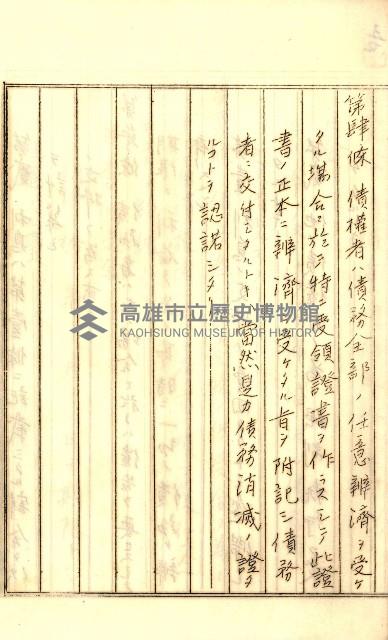 第肆條 債權者ハ債務全部ノ任意辨濟ヲ受ケ
タル場合ニ於テ特ニ受領證書ヲ作ラスシテ此證
書ノ正本ニ辨濟ヲ受ケタル旨ヲ附記シ債務
者ニ交付シタルトキハ當然是カ債務消滅ノ證タ
ルコトヲ認諾シタリ
高雄市立歷史博物館
KAOHSIUNG MUSEUM OF HISTORY